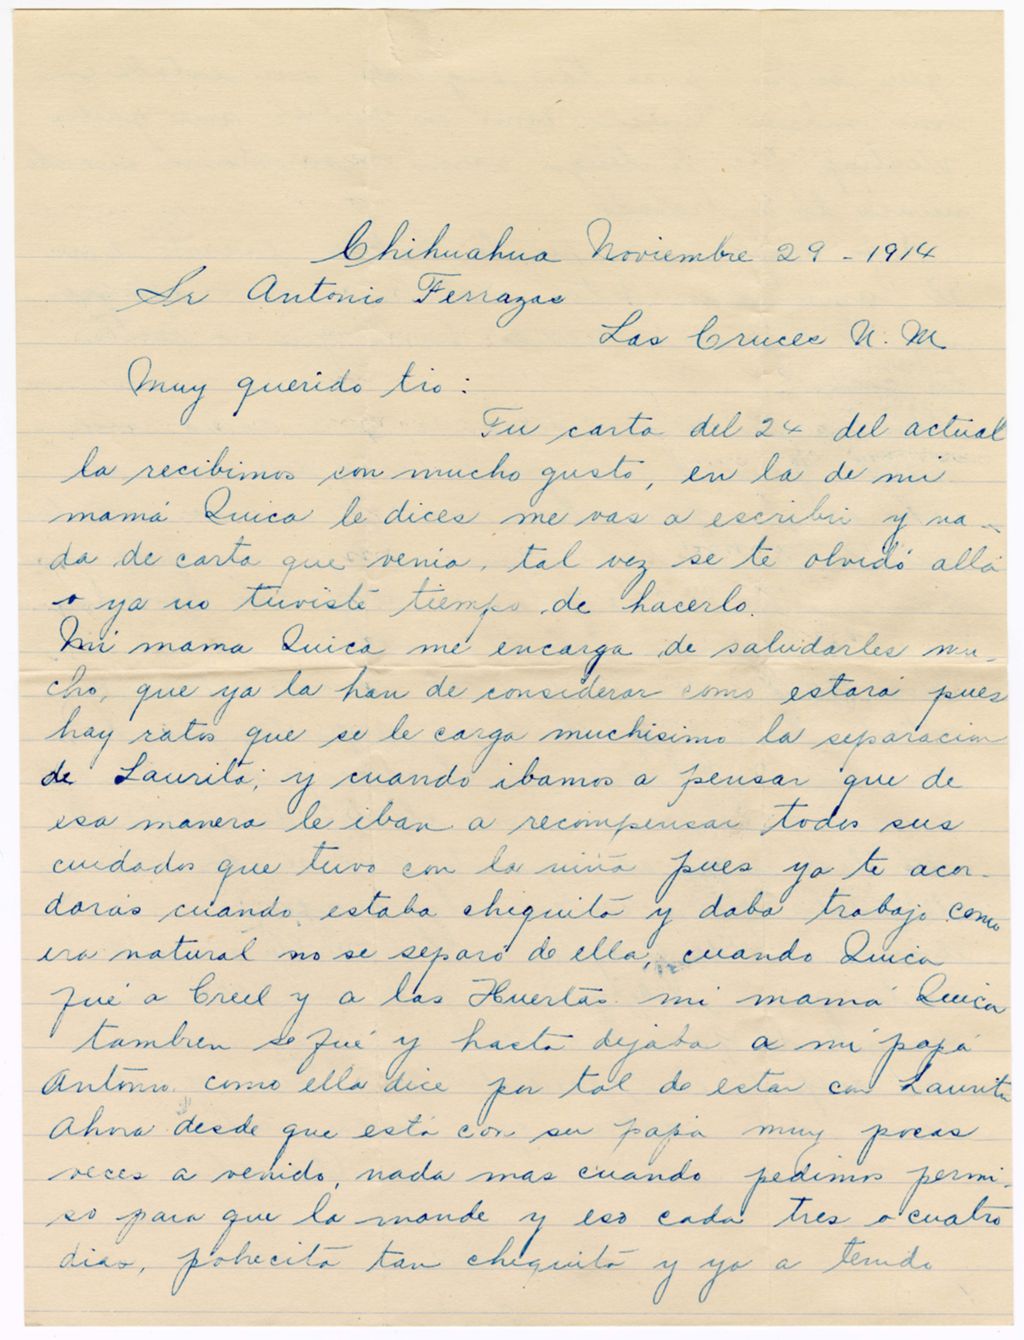 Chihuahua Noviembre 29 - 1914
Sr Antonio Terrazas
Las Cruces N. M.
Muy querido tio:
Tu carta del 24 del actual
la recibimos con mucho gusto, en la de mi
mamá Quica le dices me vas a escribir y na-
da de carta que venia, tal vez se te olvidó allá
o ya no tuviste tiempo de hacerlo.
Mi mama Quica me encarga de saludarles mu-
cho, que ya la han de considerar como estará pues
hay ratos que se le carga muchisimo la separacion
de Laurita; y cuando ibamos a pensar que de
esa manera le iban a recompensar todos sus
cuidados que tuvo con la niña pues ya te acor-
darás cuando estaba chiquita y daba trabajo como
era natural no se separó de ella, cuando Quica
fué a Creel y a las Huertas mi mamá Quica
tambien se fué y hasta dejaba a mi papá
Antonio como ella dice por tal de estar con Laurita
Ahora desde que está con su papá muy pocas
veces a venido, nada mas cuando pedimos permi-
so para que la mande y eso cada tres o cuatro
dias, pobecita tan chiquita y ya a tenido